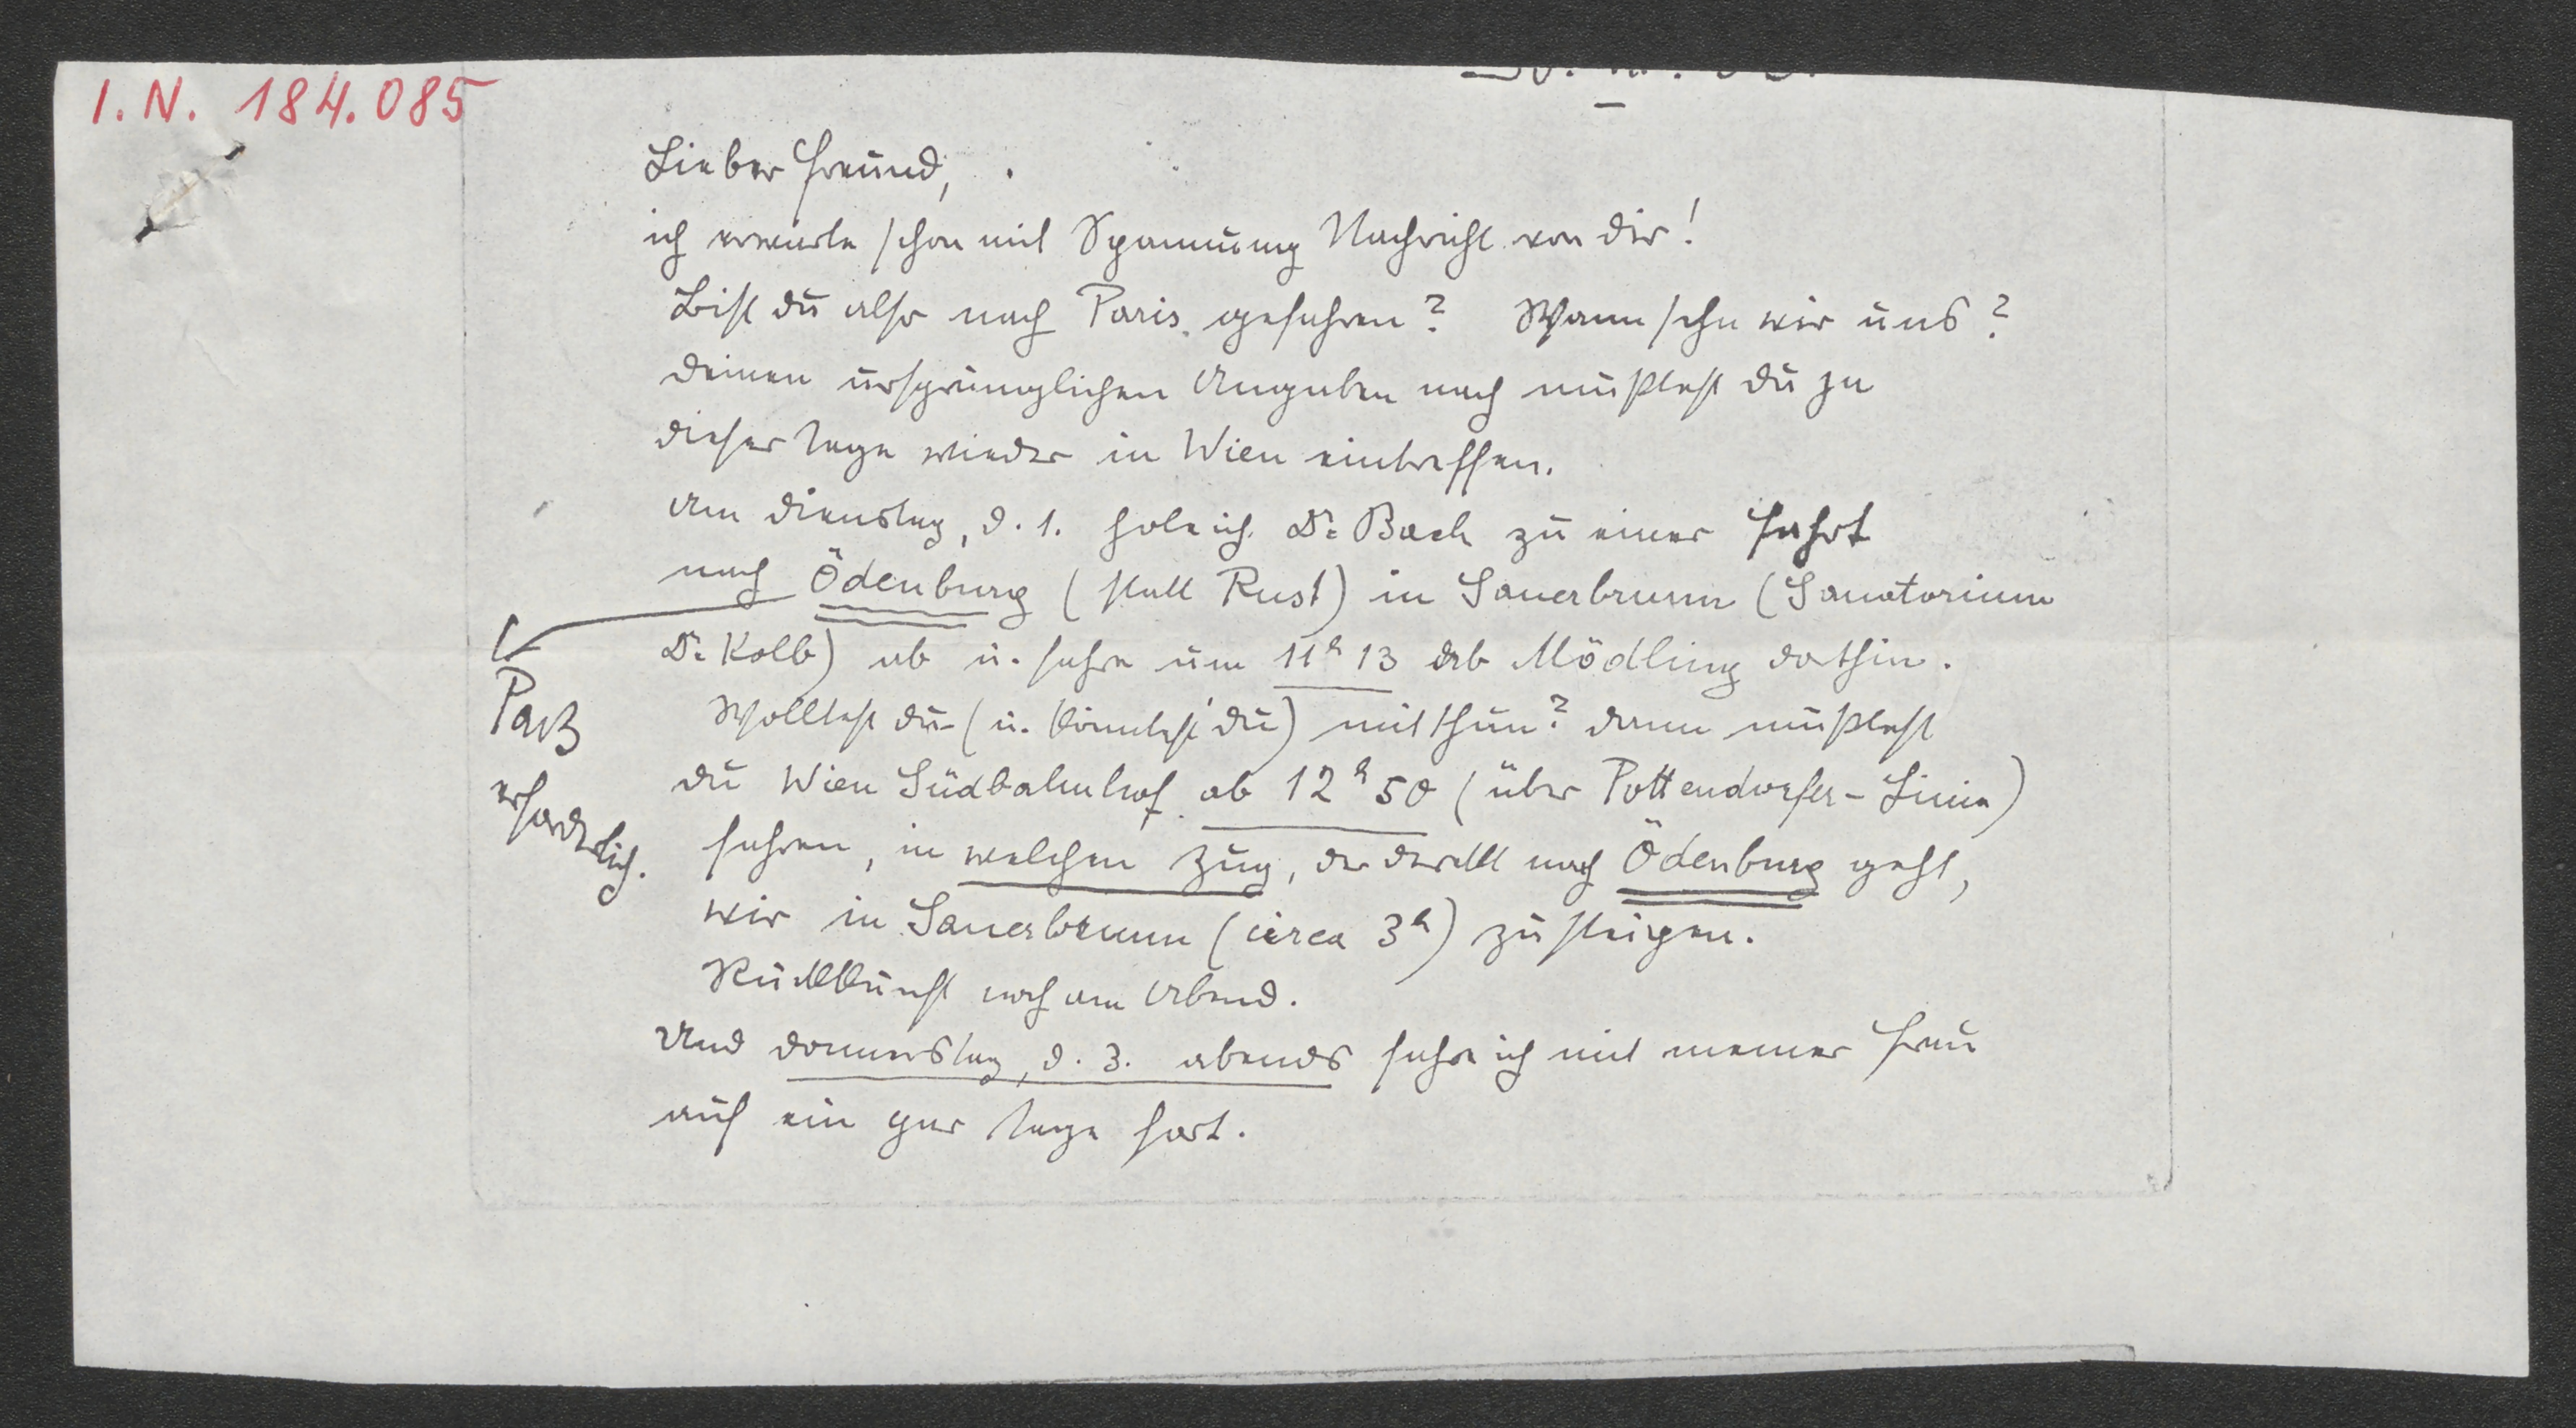 I.N. 184.085
Lieber Freund,
ich erwarte schon mit Spannung Nachricht von Dir!
Bist Du also nach Paris gefahren? Wann sehn wir uns?
Deinen ursprünglichen Angaben nach müßtest Du ja
dieser Tage wieder in Wien eintreffen.
Am Dienstag, d. 1. hole ich Dr Bach zu einer Fahrt
nach Ödenburg (statt Rust) in Sauerbrunn (Sanatorium
Dr Kolb) ab u. fahre um 11h 13 ab Mödling dorthin.
Paß
erforderlich.
Wolltest Du (u. könntest Du) mitthun? Dann müßtest
Du Wien Südbahnhof ab 12h 50 (über Pottendorfer-Linie)
fahren, in welchen Zug, der direkt nach Ödenburg geht,
wir in Sauerbrunn (circa 3h) zusteigen.
Rückkunft noch am Abend.
Und Donnerstag, d. 3. abends fahre ich mit meiner Frau
auf ein par Tage fort.